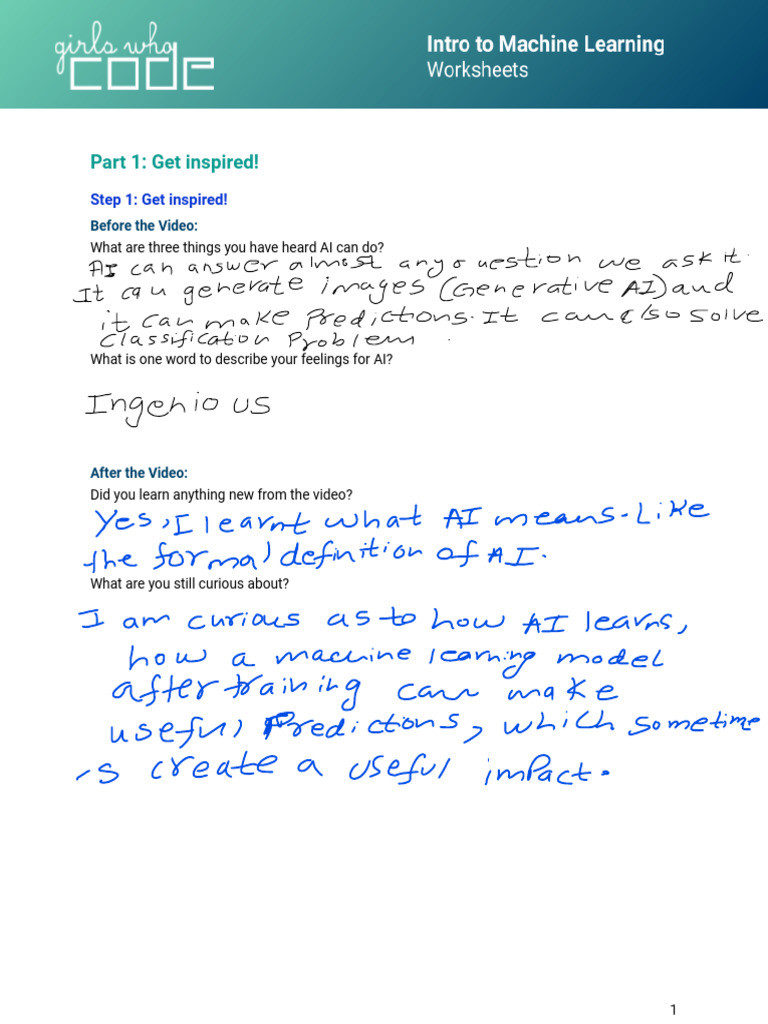 girls who
CODE
Intro to Machine Learning
Worksheets
Part 1: Get inspired!
Step 1: Get inspired!
Before the Video:
What are three things you have heard AI can do?
AI can answer almost any question we ask it.
It can generate images (Generative AI) and
it can make Predictions. It can also solve
Classification Problem
What is one word to describe your feelings for AI?
Ingenious
After the Video:
Did you learn anything new from the video?
Yes, I learnt what AI means. Like
the formal definition of AI.
What are you still curious about?
I am curious as to how AI learns,
how a machine learning model
after training can make
useful Predictions, which sometime
s create a useful impact.
1